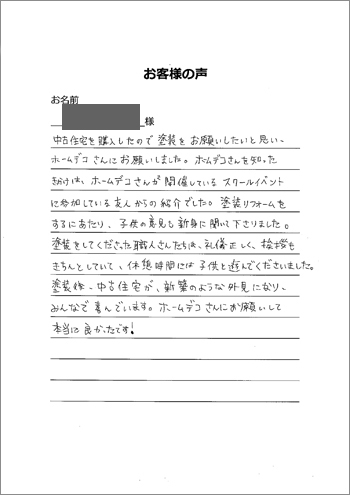 お客様の声
お名前
様
中古住宅を購入したので塗装をお願いしたいと思い、
ホームデコさんにお願いしました。ホームデコさんを知った
きっかけは、ホームデコさんが開催しているスクールイベント
に参加している友人からの紹介でした。塗装リフォームを
するにあたり、子供の意見も親身に聞いて下さりました。
塗装をしてくださった職人さんたちは、礼儀正しく、挨拶も
きちんとしていて、休憩時間には子供と遊んでくださいました。
塗装後、中古住宅が、新築のような外見になり、
みんなで喜んでいます。ホームデコさんにお願いして
本当に良かったです!